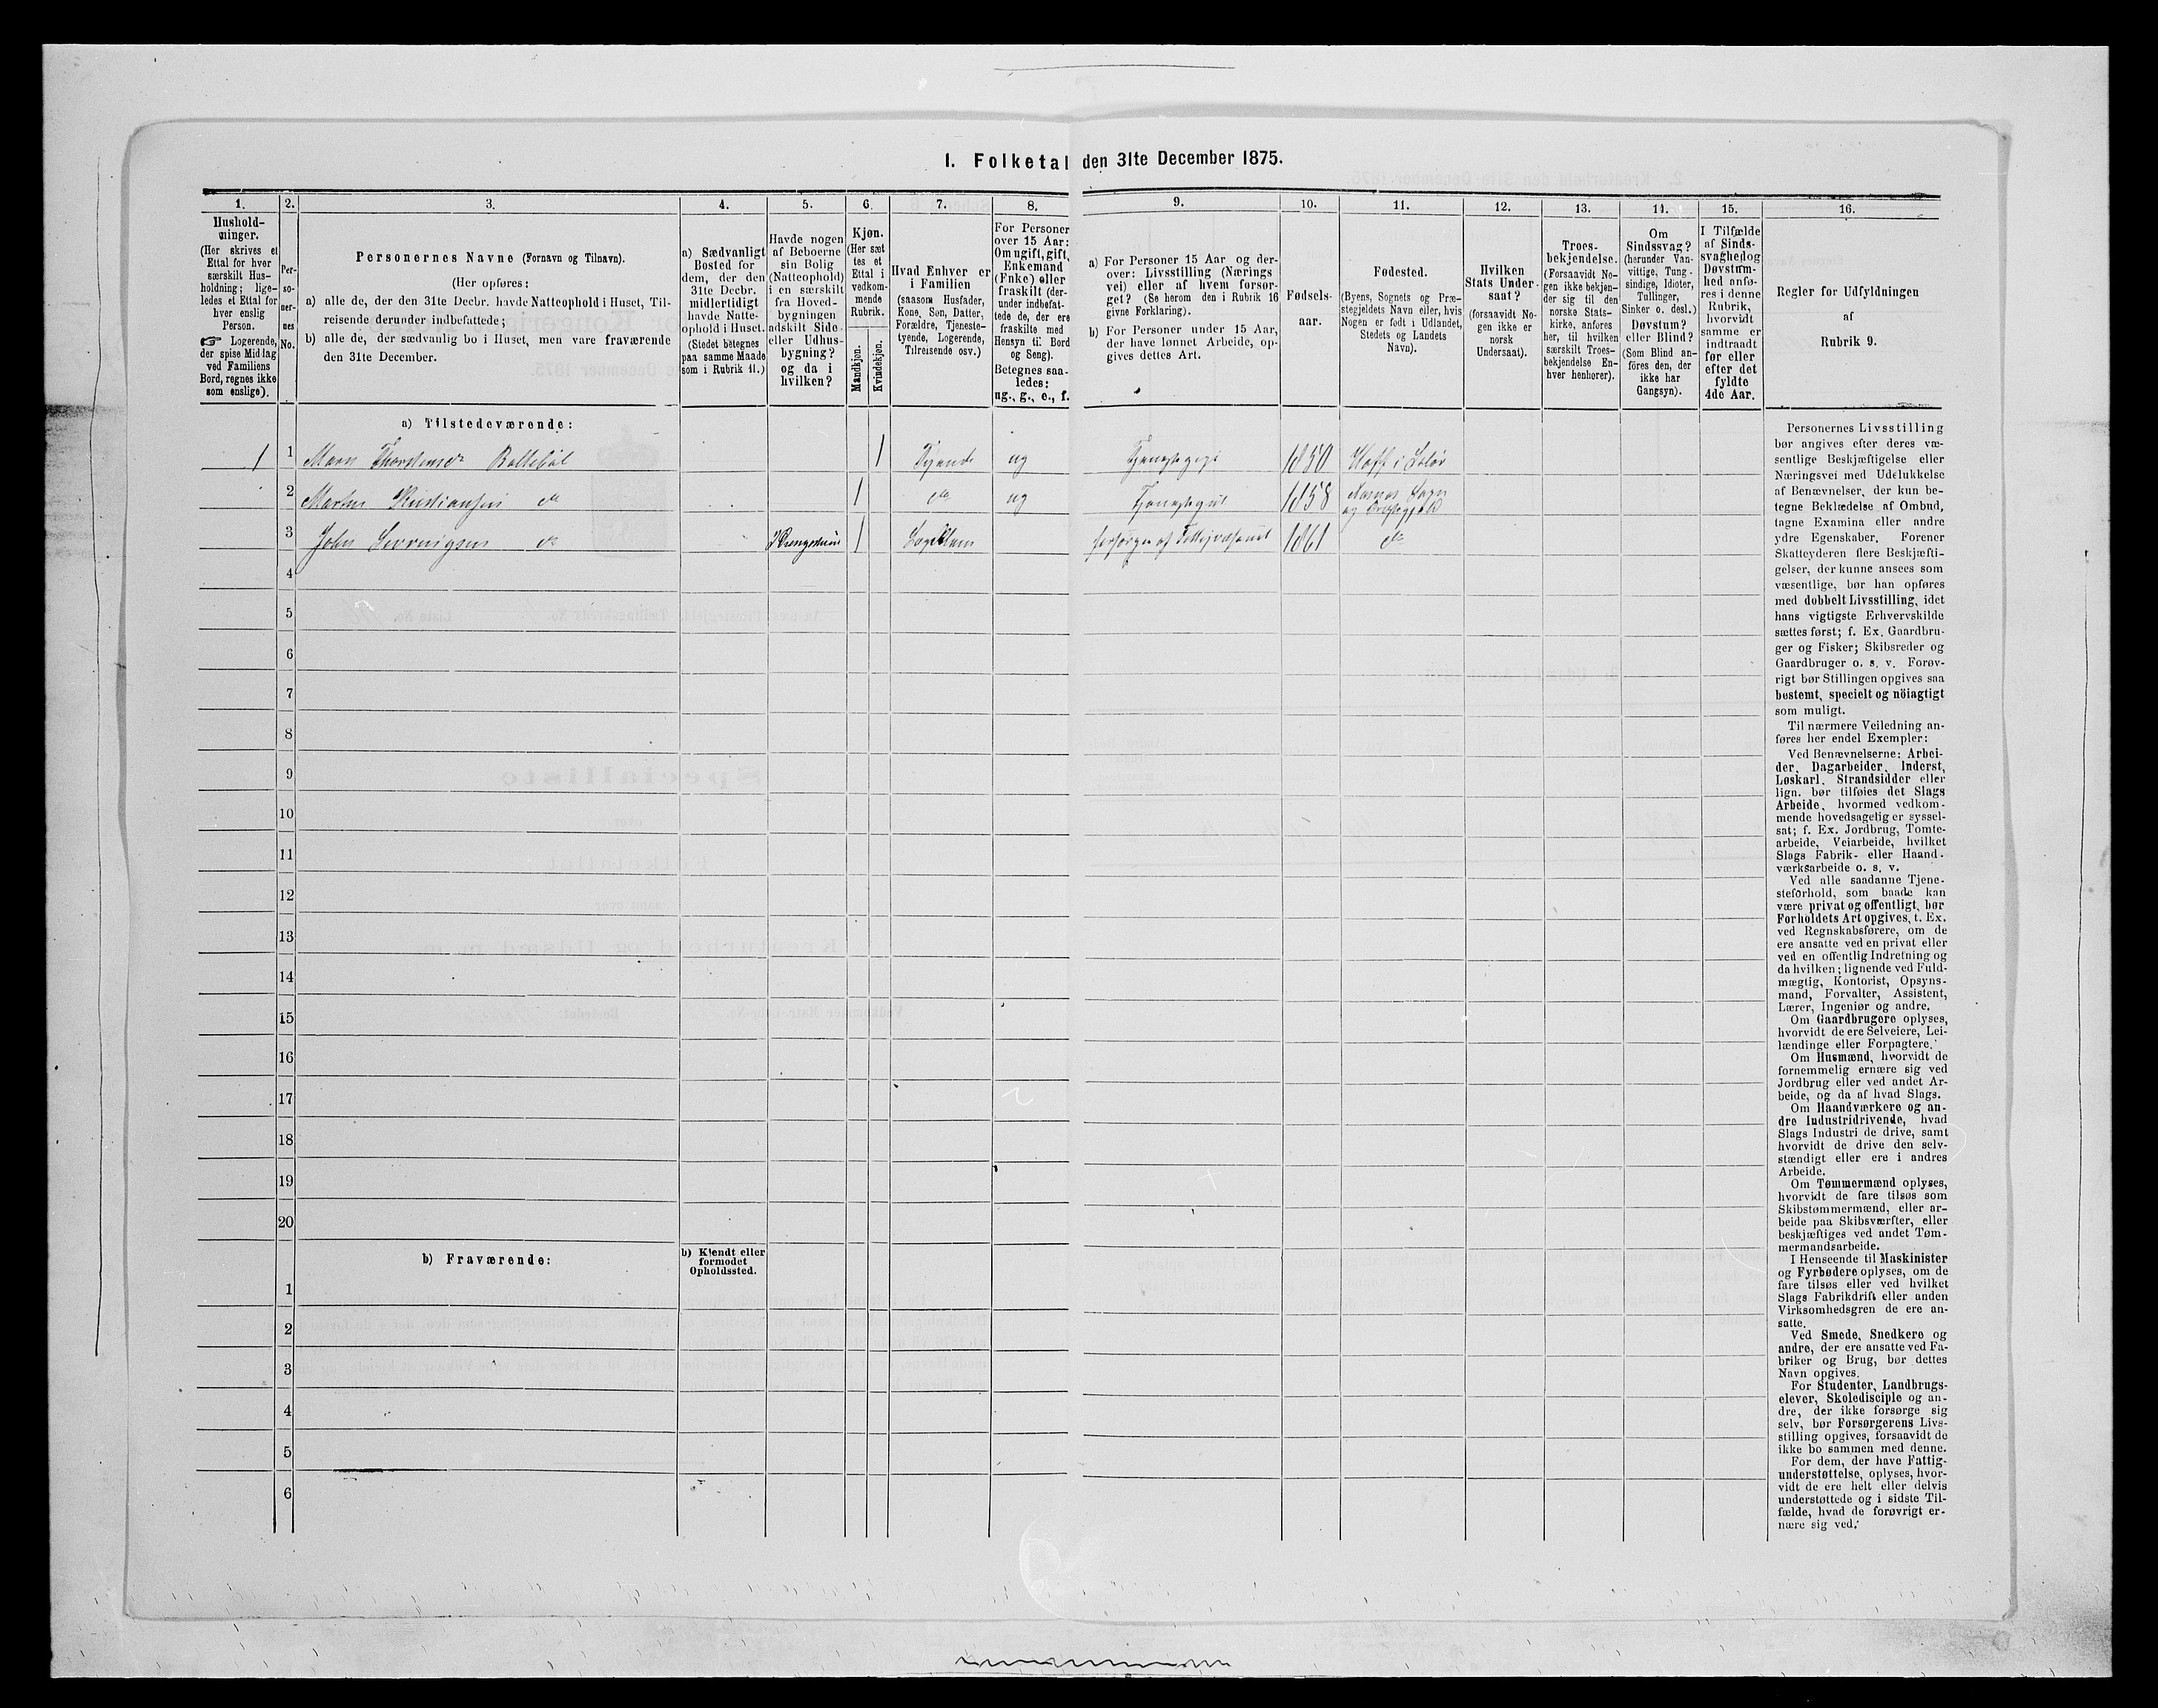 1. Folketal den 31te December 1875.
1.
2.
3.
4.
5.
6.
7.
8.
9.
10.
11.
12.
13.
14.
15.
16.
Hushold-
ninger.
(Her skrives et
Ettal for hver
særskilt Hus-
holdning; lige-
ledes et Ettal for
hver enslig
Person.
☞ Logerende,
der spise Middag
ved Familiens
Bord, regnes ikke
som enslige).
Per-
so-
ner-
nes
No.
Personernes Navne (Fornavn og Tilnavn).
(Her opføres:
a) alle de, der den 31te Decbr. havde Natteophold i Huset, Til-
reisende derunder indbefattede;
b) alle de, der sædvanlig bo i Huset, men vare fraværende
den 31te December.
a) Sædvanligt
Bosted for
dem, der den
31te Decbr.
midlertidigt
havde Natte-
ophold i Huset.
(Stedet betegnes
paa samme Maade
som i Rubrik 11.)
Havde nogen
af Beboerne
sin Bolig
(Natteophold)
i en særskilt
fra Hoved-
bygningen
adskilt Side
eller Udhus-
bygning?
og da i
hvilken?
Kjøn.
(Her sæt
tes et
Ettal i
vedkom-
mende
Rubrik.
Mandkjøn.
Kvindekjøn.
Hvad Enhver er
i Familien
(saasom Husfader,
Kone, Søn, Datter,
Forældre, Tjeneste-
tyende, Logerende,
Tilreisende osv.)
For Personer
over 15 Aar:
Om ugift, gift,
Enkemand
(Enke) eller
fraskilt (der-
under indbefat-
tede de, der ere
fraskilte med
Hensyn til Bord
og Seng).
Betegnes saa-
ledes:
ug., g., e., f.
a) For Personer 15 Aar og der-
over: Livsstilling (Nærings
vei) eller af hvem forsør-
get? (Se herom den i Rubrik 16
givne Forklaring).
b) For Personer under 15 Aar,
der have lønnet Arbeide, op-
gives dettes Art.
Fødsels-
aar.
Fødested.
(Byens, Sognets og Præ-
stegjeldets Navn eller, hvis
Nogen er født i Udlandet,
Stedets og Landets
Navn).
Hvilken
Stats Under-
saat?
(forsaavidt No-
gen ikke er
norsk
Undersaat).
Troes-
bekjendelse.
(Forsaavidt No-
gen ikke bekjen-
der sig til den
norske Stats-
kirke, anføres
her, til hvilken
særskilt Troes-
bekjendelse En-
hver henhører).
Om
Sindssvag?
(herunder Van-
vittige, Tung-
sindige, Idioter,
Tullinger,
Sinker o. desl.)
Døvstum?
eller Blind?
(Som Blind an-
føres den, der
ikke har
Gangsyn).
I Tilfælde
af Sinds-
svaghed og
Døvstum-
hed anfø-
res i denne
Rubrik,
hvorvidt
samme er
indtraadt
før eller
efter det
fyldte
4de Aar.
Regler for Udfyldningen
af
Rubrik 9.
a) Tilstedeværende:
1 1 1 Tyende ug 1850
2 Kristiansen do 1 do ug 1858
3 John do 1 Lægdslem 1861 do
4
5
6
7
8
9
10
11
12
13
14
15
16
17
18
19
20
b) Fraværende:
b) Kjendt eller
formodet
Opholdssted.
1
2
3
4
5
6
Personernes Livsstilling
bør angives efter deres væ-
sentlige Beskjæftigelse eller
Næringsvei med Udelukkelse
af Benævnelser, der kun be-
tegne Beklædelse af Ombud,
tagne Examina eller andre
ydre Egenskaber. Forener
Skatteyderen flere Beskjæfti-
gelser, der kunne ansees som
væsentlige, bør han opføres
med dobbelt Livsstilling, idet
hans vigtigste Erhvervskilde
sættes først; f. Ex. Gaardbru-
ger og Fisker; Skibsreder og
Gaardbruger o. s. v. Forøv-
rigt bør Stillingen opgives saa
bestemt, specielt og nöiagtigt
som muligt.
Til nærmere Veiledning an-
føres her endel Exempler:
Ved Benævnelserne: Arbei-
der, Dagarbeider, Inderst,
Løskarl, Strandsidder eller
lign. bør tilføies det Slags
Arbeide, hvormed vedkom-
mende hovedsagelig er syssel-
sat; f. Ex. Jordbrug, Tomte-
arbeide, Veiarbeide, hvilket
Slags Fabrik- eller Haand-
værksarbeide o. s. v.
Ved alle saadanne Tjene-
steforhold, som baade kan
være privat og offentligt, bør
Forholdets Art opgives, t. Ex.
ved Regnskabsførere, om de
ere ansatte ved en privat eller
ved en offentlig Indretning og
da hvilken; lignende ved Fuld-
mægtig, Kontorist, Opsyns-
mand, Forvalter, Assistent,
Lærer, Ingeniør og andre.
Om Gaardbrugere oplyses,
hvorvidt de ere Selveiere, Lei-
lændinge eller Forpagtere.
Om Husmænd, hvorvidt de
fornemmelig ernære sig ved
Jordbrug eller ved andet Ar-
beide, og da af hvad Slags.
Om Haandværkere og an-
dre Industridrivende, hvad
Slags Industri de drive, samt
hvorvidt de drive den selv-
stændigt eller ere i andres
Arbeide.
Om Tømmermænd oplyses,
hvorvidt de fare tilsøs som
Skibstømmermænd, eller ar-
beide paa Skibsværfter, eller
beskjæftiges ved andet Tøm-
mermandsarbeide.
I Henseende til Maskinister
og Fyrbødere oplyses, om de
fare tilsøs eller ved hvilket
Slags Fabrikdrift eller anden
Virksomhedsgren de ere an-
satte.
Ved Smede, Snedkere og
andre, der ere ansatte ved Fa-
briker og Brug, bør dettes
Navn opgives.
For Studenter, Landbrugs-
elever, Skoledisciple og an-
dre, der ikke forsørge sig
selv, bør Forsørgerens Livs-
stilling opgives, forsaavidt de
ikke bo sammen med denne.
For dem, der have Fattig-
understøttelse, oplyses, hvor-
vidt de ere helt eller delvis
understøttede og i sidste Til-
fælde, hvad de forøvrigt er-
nære sig ved.